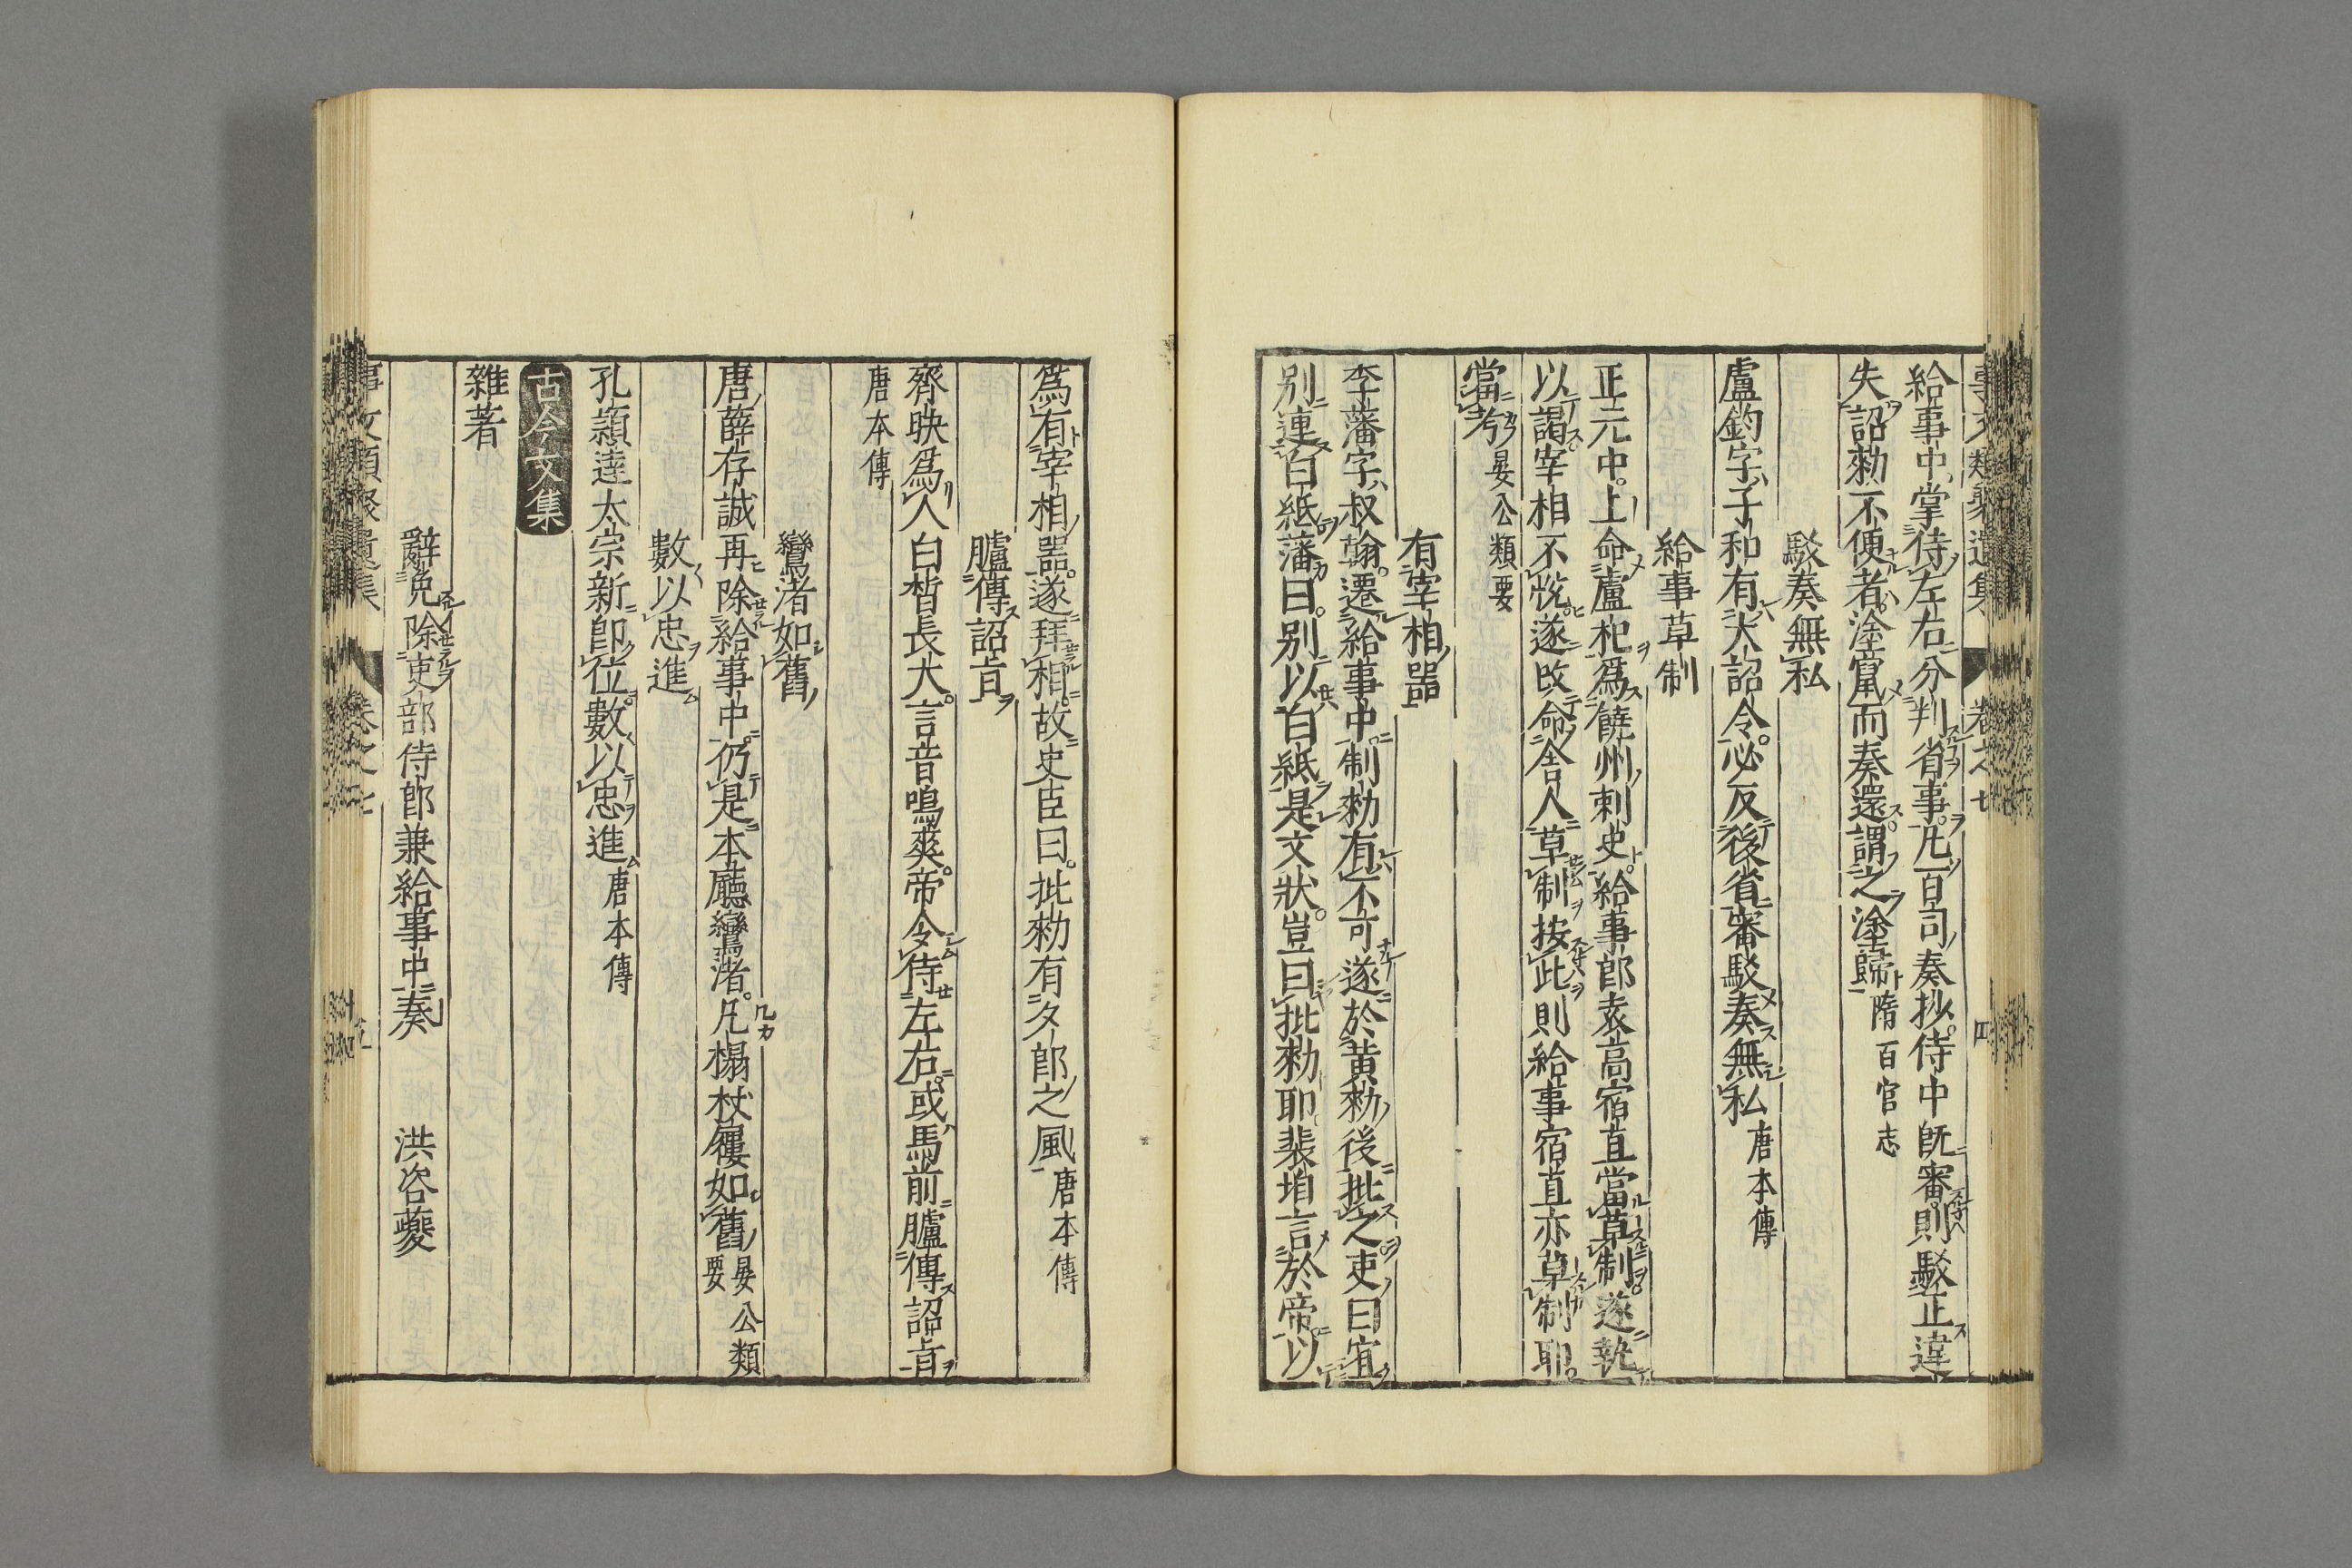 事文類聚遺集 卷之七 四
給事中掌侍左右分判省事凡百司奏抄侍中既審則駁正違
失詔勅不便者塗竄而奏還謂之塗歸 隋百官志
駁奏無私
盧鈞字子和有大詔令必反後省審駁奏無私 唐本傳
給事草制
正元中上命盧杞爲饒州刺史給事郎袁高宿直當草制遂執
以謁宰相不悅遂改命舍人草制按此則給事宿直亦草制耶
當考 晏公類要
有宰相器
李藩字叔翰遷給事中制勅有不可遂於黃勅後批之吏曰宜
別連白紙藩曰別以白紙是文狀豈曰批勅耶裴垍言於帝以
爲有宰相器遂拜相故史臣曰批勅有夕郎之風 唐本傳
臚傳詔旨
齊映爲人白晳長大言音鳴爽帝令侍左右或馬前臚傳詔旨
唐本傳
鸞渚如舊
唐薛存誠再除給事中仍是本廳鸞渚凡榻杖屨如舊 晏公類要
數以忠進
孔穎達太宗新卽位數以忠進 唐本傳
古今文集
雜著
辭免除吏部侍郎兼給事中奏 洪咨夔
事文類聚遺集 卷之七